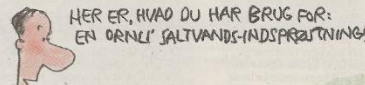 HER ER, HVAD DU HAR BRUG FOR:
EN ORNLI' SALTVANDS-INDSPRØJTNING!